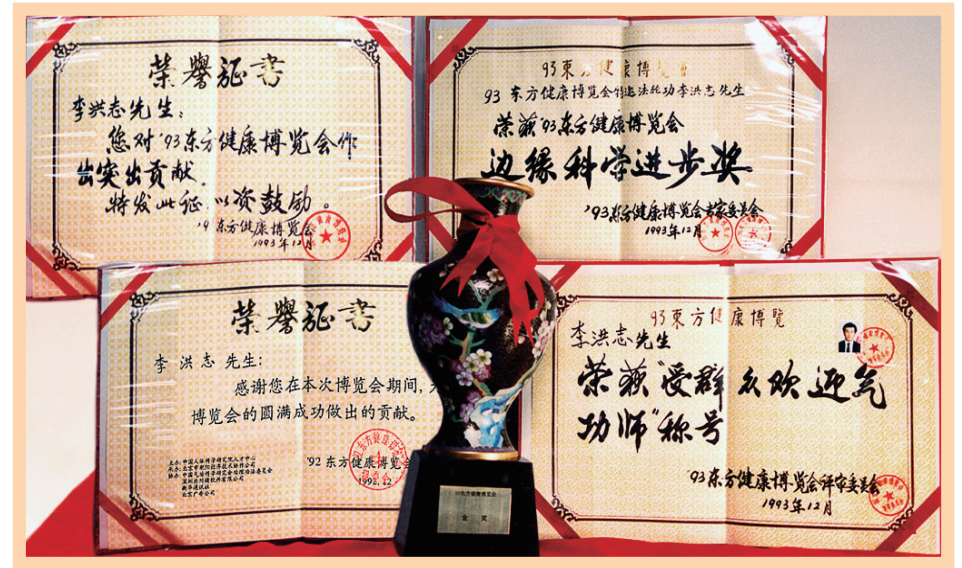 荣誉证书
李洪志先生：
您对'93东方健康博览会作
出突出贡献，
特发此证，以资鼓励。
'9 东方健康博览会
1993年12月
93東方健康博览会
93 东方健康博览会特邀法轮功李洪志先生
荣获'93东方健康博览会
边缘科学进步奖
'93东方健康博览会专家委员会
1993年12月
荣誉证书
李 洪 志 先生：
感谢您在本次博览会期间，
博览会的圆满成功做出的贡献。
'92 东方健康博览会
1993.12
93東方健康博览
李洪志先生
荣获“受群众欢迎气
功师”称号
'93东方健康博览会评审委员会
1993年12月
93东方健康博览会
金 奖